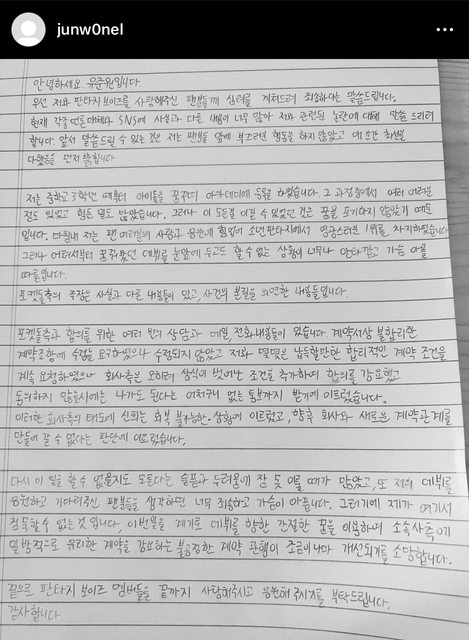 junw0nel
안녕하세요. 유준원입니다.
우선 저와 판타지보이즈를 사랑해주신 팬분들께 심려를 끼쳐드려 죄송하다는 말씀드립니다.
현재 각종언론매체와 SNS에 사실과 다른 내용이 너무 많아 저와 관련된 논란에 대해 말씀 드리려
합니다. 앞서 말씀드릴 수 있는것은 저는 팬분들 앞에 부끄러운 행동을 하지 않았고 매 순간 최선을
다했음을 먼저 밝힙니다
저는 중학교 3학년 때부터 아이돌을 꿈꾸며 아카데미에 등록을 하였습니다. 그 과정중에서 여러 어려운
점도 있었고 힘든 일도 많았습니다. 그러나 이 모든걸 이길 수 있었던 것은 꿈을 포기하지 않았기 때문
입니다. 마침내 저는 팬 여러분의 사랑과 응원에 힘입어 소년판타지에서 영광스러운 1위를 차지하였습니다
그러나 어려서부터 꿈꿔왔던 데뷔를 눈앞에 두고도 할 수 없는 상황이 너무나 안타깝고 가슴 아플
따름입니다.
포켓돌측의 주장은 사실과 다른 내용들이 있고, 사건의 본질을 외면한 내용들입니다.
포켓돌측과 합의를 위한 여러 번의 상담과 메일, 전화내용들이 있습니다. 계약서상 불합리한
계약조항에 수정을 요구하였으나 수정되지 않았고 저와 몇몇은 납득할만한 합리적인 계약 조건을
계속 요청하였으나 회사측은 오히려 상식이 벗어난 조건을 추가하여 합의를 강요했고
동의하지 않을시에는 나가도 된다는 어처구니 없는 통보까지 받기에 이르렀습니다.
이러한 회사측의 태도에 신뢰는 회복 불가능한 상황에 이르렀고, 향후 회사와 새로운 계약관계를
만들어 갈 수 없다는 판단에 이르렀습니다.
다시 이 일을 할 수 없을지도 모른다는 슬픔과 두려움에 잠 못 이룰 때가 많았고, 또 저의 데뷔를
응원하고 기다려주신 팬분들을 생각하면 너무 죄송하고 가슴이 아픕니다. 그러기에 제가 여기서
침묵할 수 없는 것 입니다, 이번일을 계기로 데뷔를 향한 간절한 꿈을 이용하여 소속사측에
일방적으로 유리한 계약을 강요하는 불공정한 계약 관행이 조금이나마 개선되기를 소망합니다.
끝으로 판타지 보이즈 멤버들을 끝까지 사랑해주시고 응원해 주시기를 부탁드립니다.
감사합니다